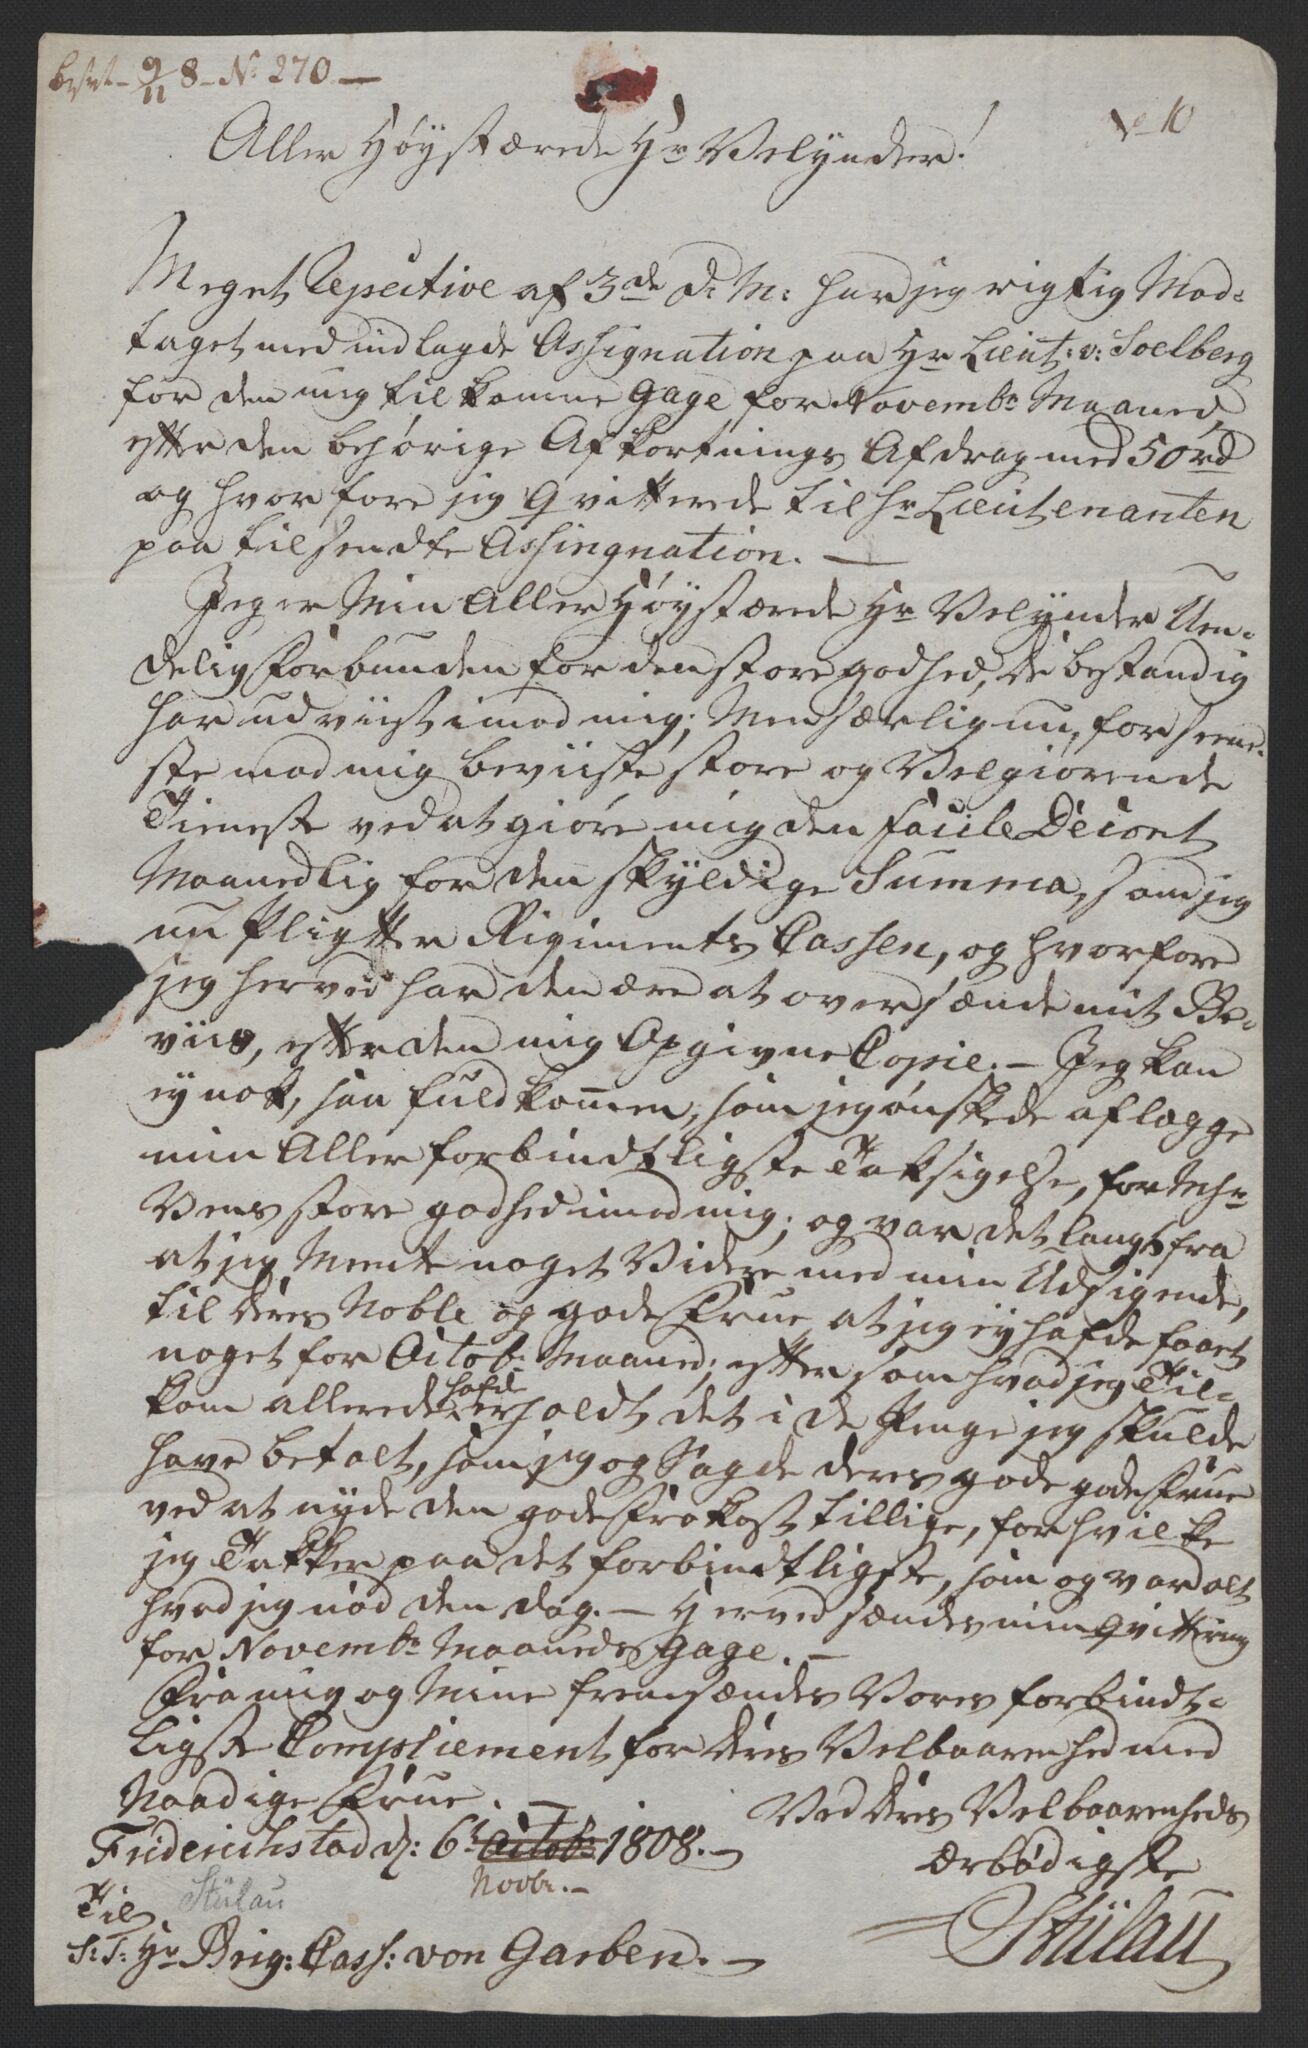 besv– 9/11 8 – No: 270 –
No 10
Aller Høystærede Hr Velÿnder!
Meget Respective af 3de d: M: har jeg rigtig Mod-
taget med indlagde Assignation paa Hr Lieut: v: Soelberg
for den mig tilkomne Gage for Novembr Maaned,
efter den behørige Afkortnings Afdrag med 50 rd
og hvorfore jeg Qvitterede til Hr Lieutenanten
paa tilsendte Assingnation. —
Jeg er Min Aller Høystærede Hr Velÿnder Uen-
delig forbunden for den store godhed, De bestandig
har udviist imod mig; Men særlig nu, for seene-
ste mod mig beviiste store og Velgiørende
Tieneste ved at giøre mig den facile Decort
Maanedlig for den skÿldige Summa, som jeg
nu Pligtter Regiments Cassen, og hvorfore
jeg herved har den ære at oversænde mit Be-
viis, efter den mig Opgivne Copie. – Jeg kan
ej nok, saa fuldkommen, som jeg ønskede aflægge
min Aller forbindtligste Taksigelse, for Mhr
Vens store godhed imod mig; og var det langt fra
at jeg Meente noget Videre med min Udsigende,
til deres Noble og gode Frue, at jeg ej hafde faaet
noget for Octobr Maaned; efter som hvad jeg Til-
kom allerede hafde erholdt det i de Penge jeg skulde
have betalt, som jeg og Sagde deres gode gode Frue
ved at nyde den gode Frokost tillige, for hvilke
jeg Takker paa det forbindtligste, som og var alt
hvad jeg nød den dag. – Herved sændes min Qvittering
for Novembr Maaneds Gage. –
Fra mig og Mine fremsændes Vores forbindt-
ligste Compliement for deres Velbaarenhed med
Naadige Frue. —
Ved deres Velbaarenheds
Friderichstad d: 6t Octobr 1808. –
Novbr. –
ærbødigste
Stülau
Til
Stülau
S: T: Hr Brig: Cass: von Garben. –